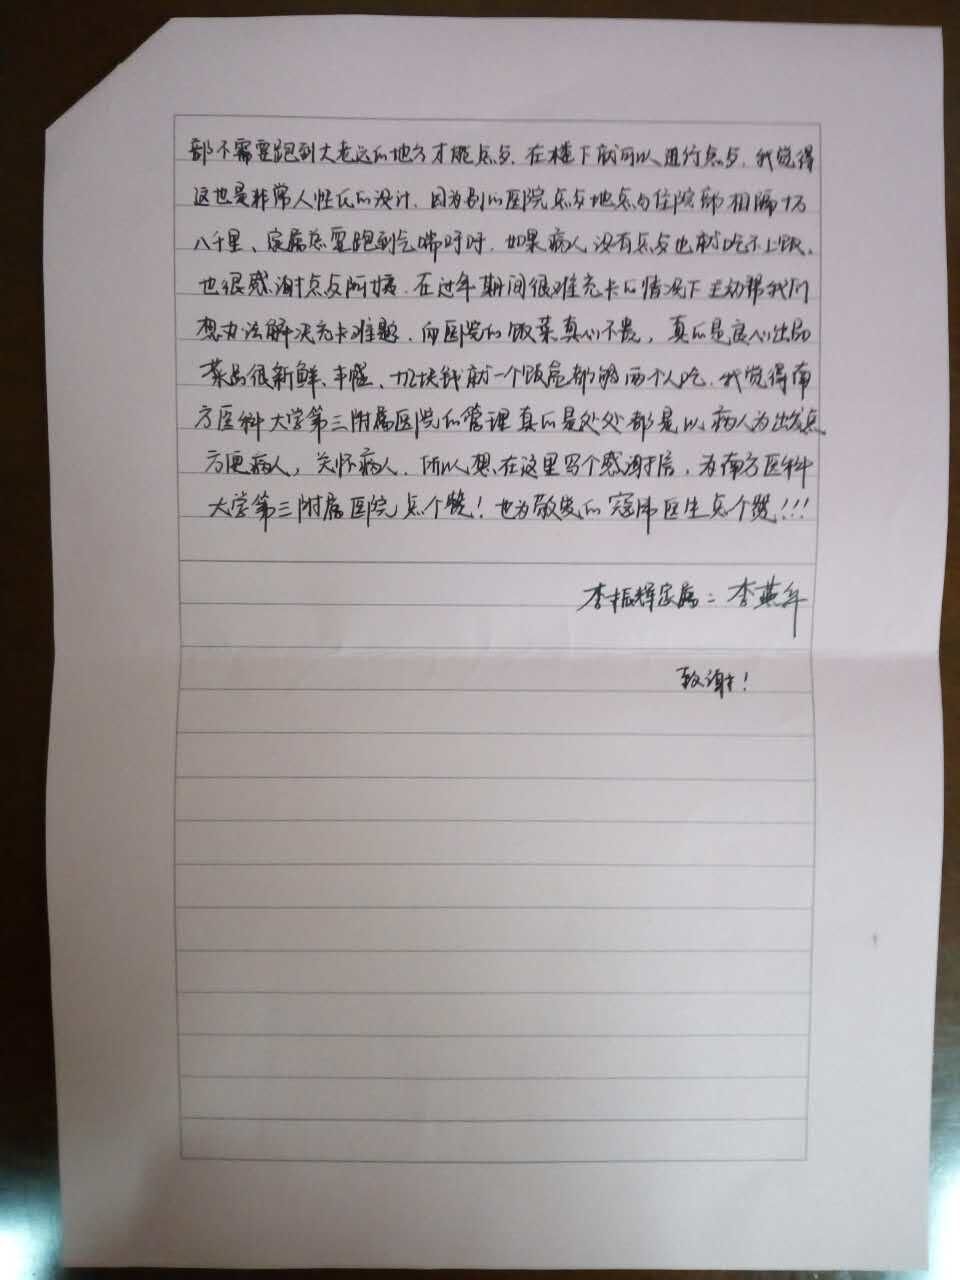 都不需要跑到大老远的地方才能点歺，在楼下就可以进行点歺，我觉得
这也是非常人性化的设计，因为别的医院点歺地点与住院部相隔十万
八千里、家属总要跑到气喘吁吁，如果病人没有点歺也就吃不上饭，
也很感谢点歺阿姨，在过年期间很难充卡的情况下主动帮我们
想办法解决充卡难题，而医院的饭菜真心不贵，真的是良心出品
菜品很新鲜、丰盛、块钱就一个饭后都够两个人吃，我觉得南
方医科大学第三附属医院的管理真的是处处都是以病人为出发点
方便病人，关怀病人，所以想在这里写个感谢信，为南方医科
大学第三附属医院点个赞！也为敬爱的寇伟医生点个赞！！！
李振辉家属：李燕
致谢！